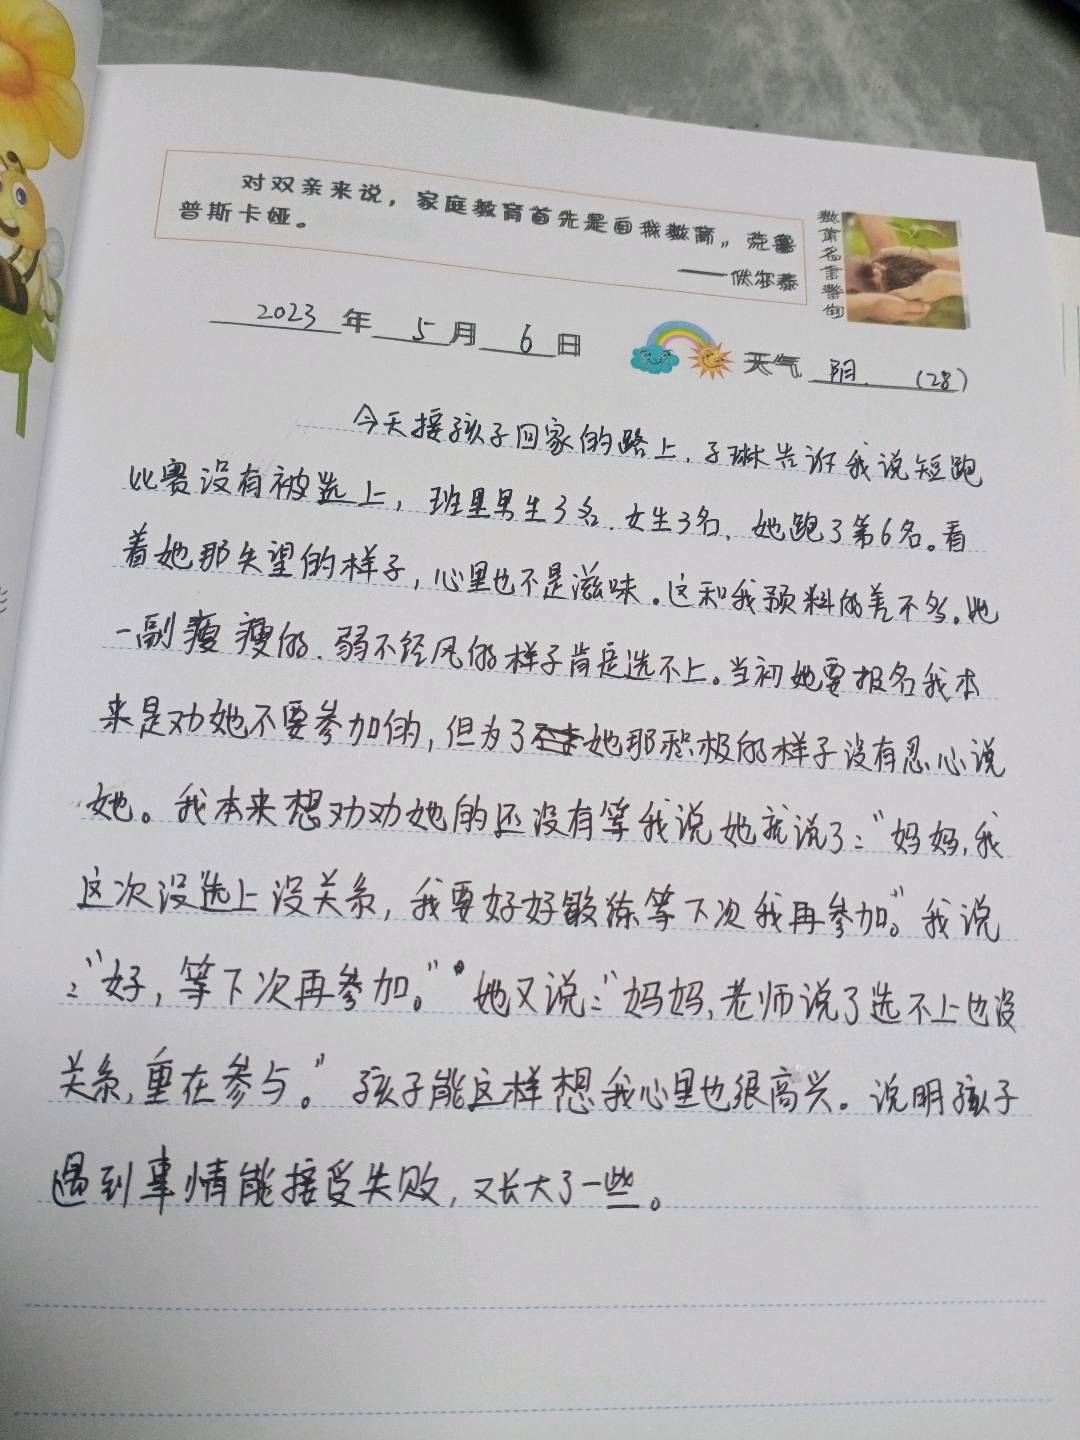 对双亲来说，家庭教育首先是自我教育。克鲁
普斯卡娅。
——伏尔泰
教育名言警句
2023年 5月 6日
天气 阴. (28)
今天接孩子回家的路上，子琳告诉我说短跑
比赛没有被选上，班里男生3名.女生3名，她跑了第6名。看
着她那失望的样子，心里也不是滋味。这和我预料的差不多。她
一副瘦瘦的.弱不经风的样子肯定选不上。当初她要报名我本
来是劝她不要参加的，但为了她那积极的样子没有忍心说
她。我本来想劝劝她的还没有等我说她就说了：“妈妈，我
这次没选上没关系，我要好好锻练等下次我再参加。”我说
：“好，等下次再参加。”她又说：“妈妈，老师说了选不上也没
关系，重在参与。”孩子能这样想我心里也很高兴。说明孩子
遇到事情能接受失败，又长大了一些。